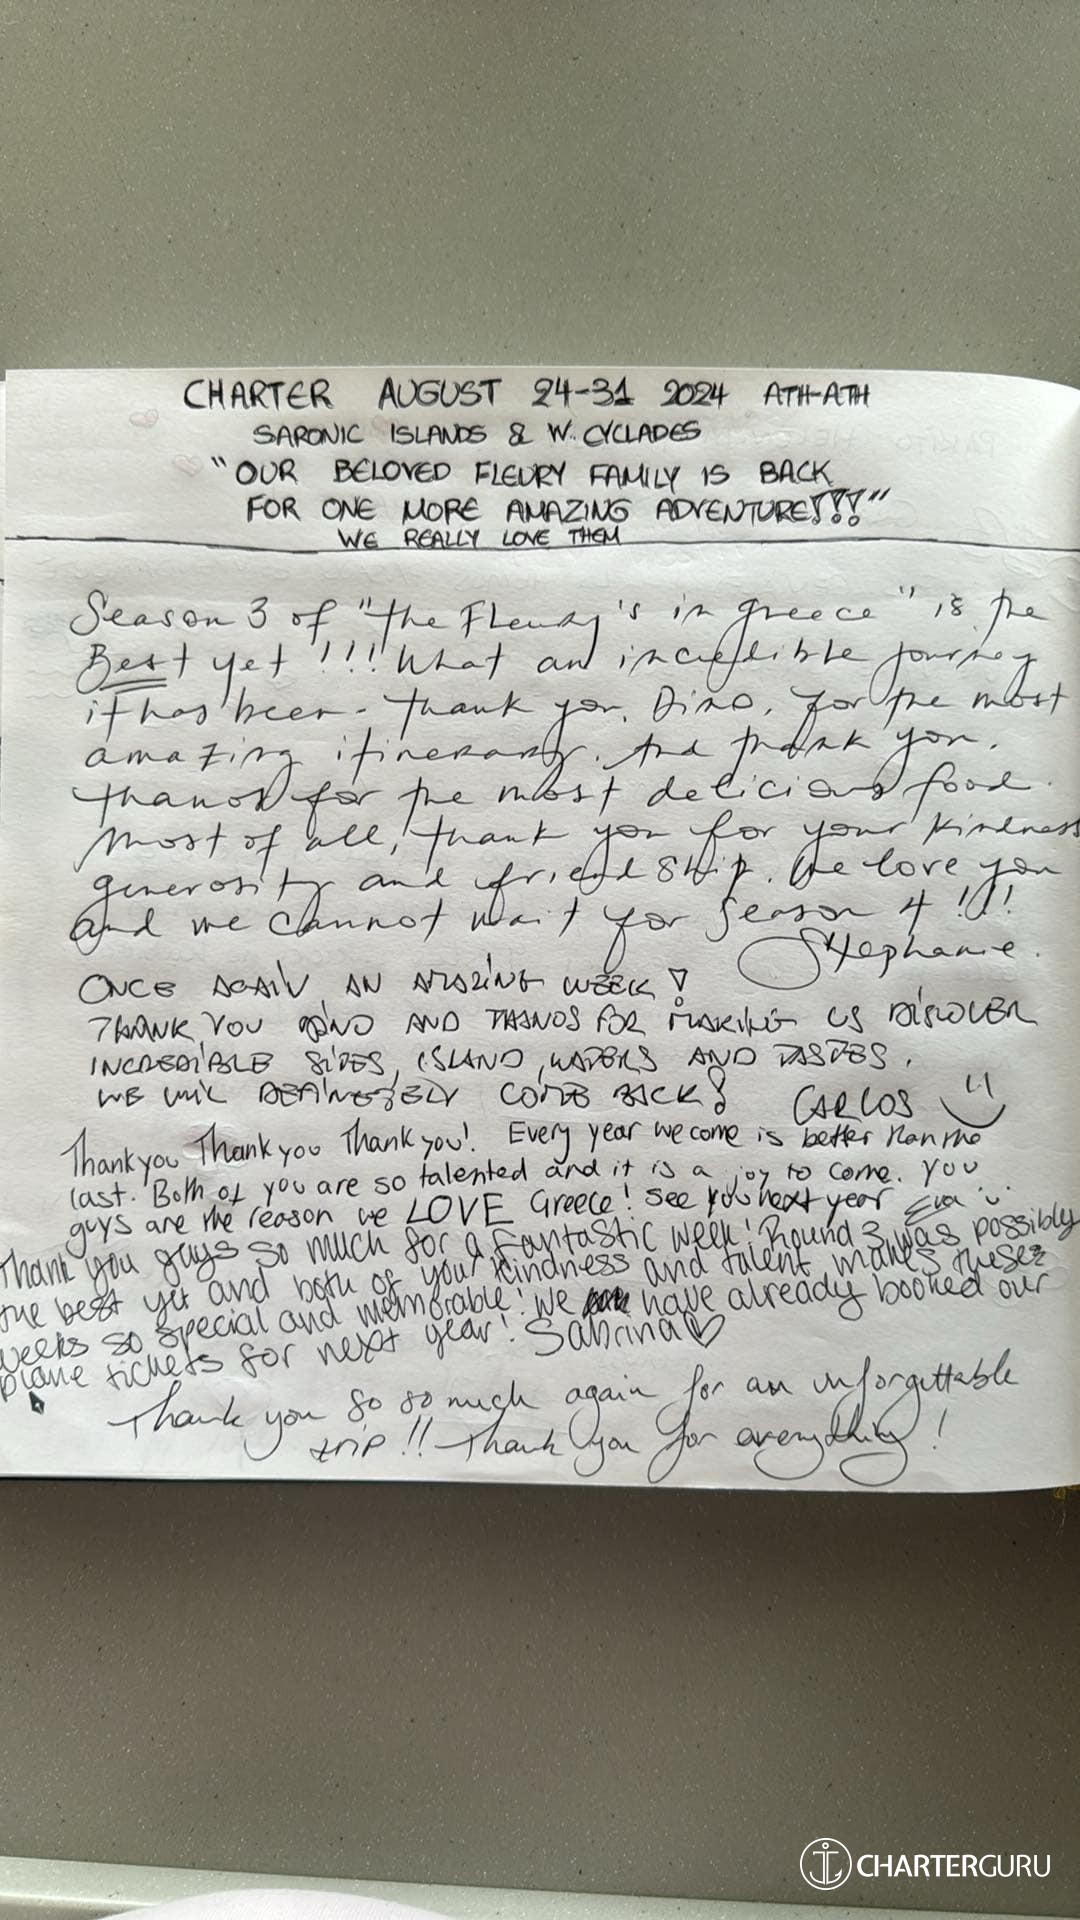 CHARTER AUGUST 24-31 2024 ATH-ATH
SARONIC ISLANDS & W. CYCLADES
"OUR BELOVED FLEURY FAMILY IS BACK
FOR ONE MORE AMAZING ADVENTURE!!!"
WE REALLY LOVE THEM
Season 3 of "the Fleury's in greece" is the
Best yet!!! What an incredible journey
it has been - thank you, Dino, for the most
amazing itinerary. And thank you,
thanos for the most delicious food.
Most of all, thank you for your kindness
generosity and friendship. We love you
and we cannot wait for Season 4!!!
Stephanie.
ONCE AGAIN AN AMAZING WEEK!
THANK YOU DINO AND THANOS FOR MAKING US DISCOVER
INCREDIBLE SITES, ISLAND, WATERS AND TASTES.
WE WILL DEFINETELY COME BACK! CARLOS
Thank you Thank you Thank you! Every year we come is better than the
last. Both of you are so talented and it is a joy to come. You
guys are the reason we LOVE Greece! See you next year Eva
Thank you guys so much for a fantastic week! Round 3 was possibly
the best yet and both of your kindness and talent makes these
weeks so special and memorable! We have already booked our
plane tickets for next year! Sabrina♡
Thank you so so much again for an unforgettable
trip!! Thank you for everything!
CHARTERGURU